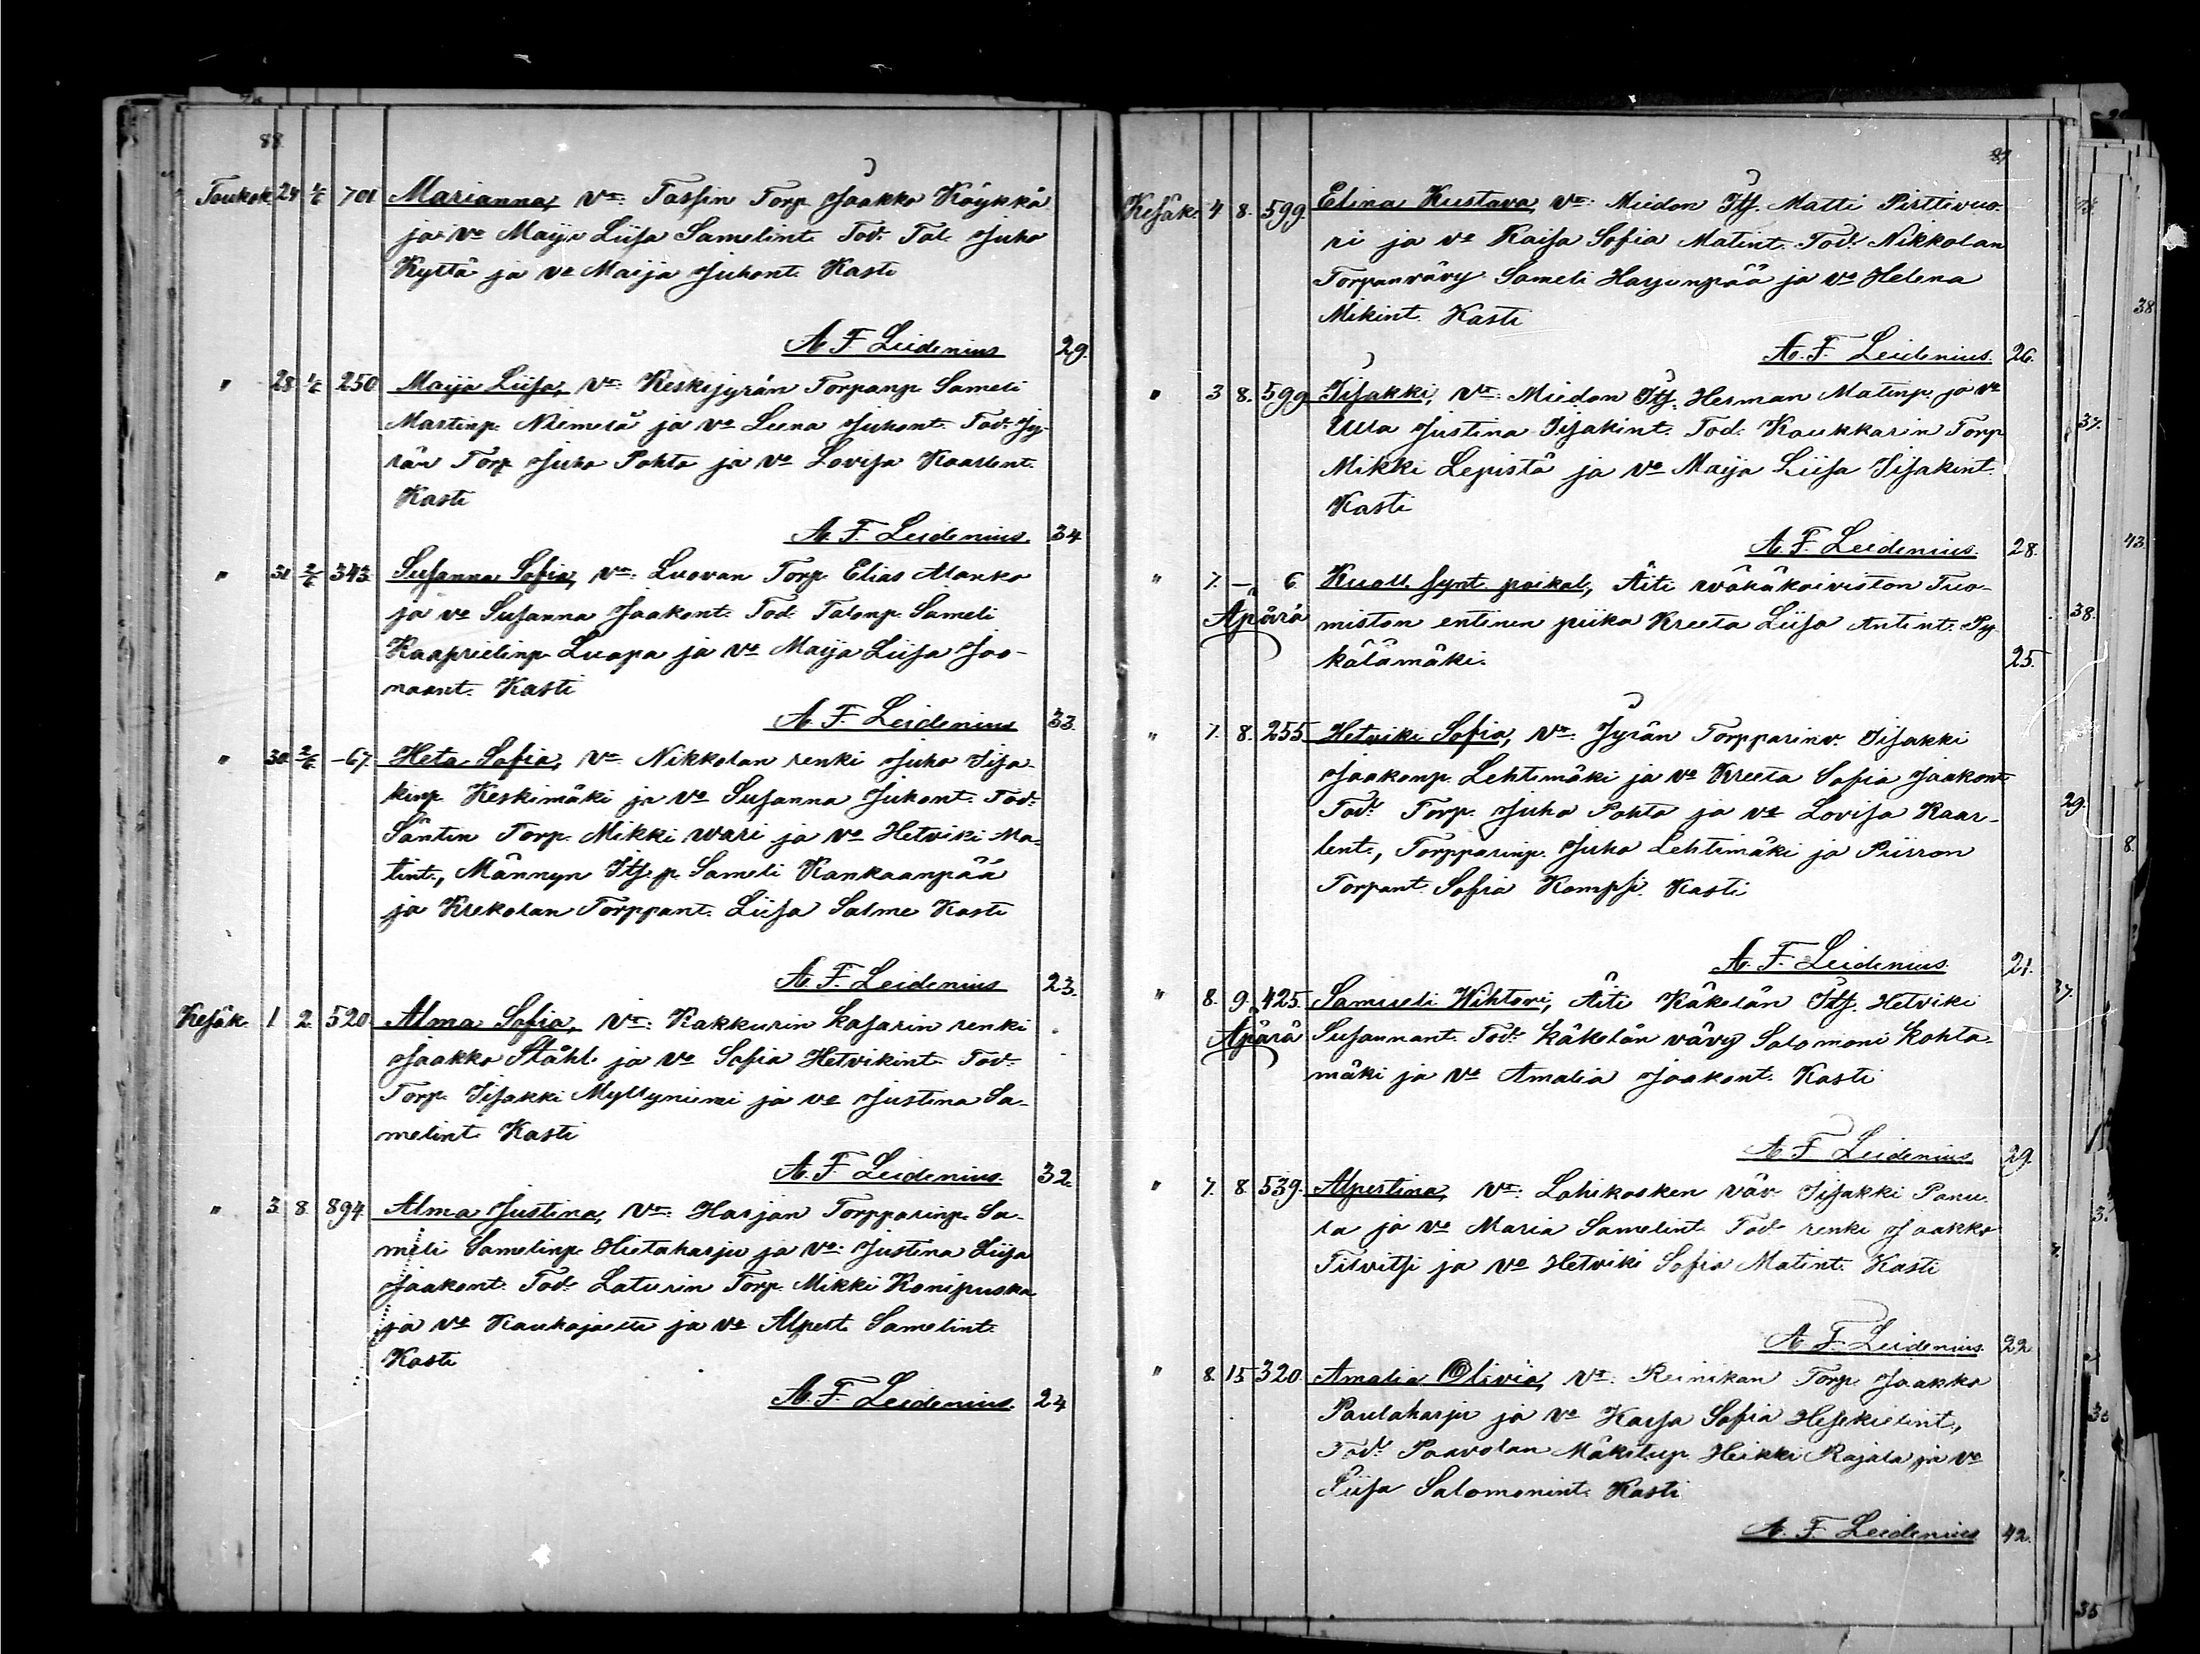 88
Toukok. 24 1/6 701 Marianna, Vt: Tassin Torp Jaakko Köykkä
ja vo Maija Liisa Samelint. Tod. Tal. Juho
Kyttä ja vo Maija Juhont. Kasti
A. F. Leidenius 29.
" 28 1/6 250 Maija Liisa, Vt: Keskijyrän Torpanp. Sameli
Martinp. Niemelä ja vo Leena Juhont. Tod. Jy-
rän Torp Juho Pohto ja vo Lovisa Kaarlent.
Kasti
A. F. Leidenius. 34
" 31 2/6 343. Susanna Sofia, Vt: Luovan Torp Elias Alanko
ja vo Susanna Jaakont. Tod. Talonp. Sameli
Kaaprielinp. Luopa ja vo Maija Liisa Joo-
naant. Kasti
A. F. Leidenius 33.
" 30. 2/6. -67. Heta Sofia, Vt. Nikkolan renki Juho Iisa-
kinp. Keskimäki ja vo Susanna Juhont. Tod:
Säntin Torp. Mikki Wari ja vo Hetviki Ma-
tint., Männyn Itsp. Sameli Kankaanpää
ja Krekolan Torppant. Liisa Salme Kasti
A. F. Leidenius 23.
Kesäk. 1 2. 520 Alma Sofia, Vt: Kakkurin Kasarin renki
Jaakko Ståhl ja vo Sofia Hetvikint. Tod.
Torp. Iisakki Myllyniemi ja vo Justina Sa-
melint. Kasti
A. F. Leidenius. 32.
" 3. 8. 894. Alma Justina, Vt: Harjan Torpparinp. Sa-
meli Samelinp. Hietaharju ja vo: Justina Liisa
Jaakont. Tod. Laturin Torp. Mikki Konipuska
ja vo Kauhajaette ja vo Alpert. Samelint.
Kasti
A. F. Leidenius. 24
89
Kesäk. 4 8. 599. Elina Kustava, Vt: Miedon Its. Matti Pirttivuo-
ri ja vo Kaisa Sofia Matint. Tod: Nikkolan
Torpanvävy Sameli Hayunpää ja vo Helena
Mikint. Kasti
A. F. Leidenius. 26.
" 3 8. 599. Iisakki, Vt: Miedon Its. Herman Matinp. ja vo
Ulla Justina Iisakint. Tod. Koukkarin Torp
Mikki Lepistä ja vo Maija Liisa Iisakint.
Kasti
A. F. Leidenius. 28.
" 7. — 6 Kuoll. synt. poikal., Äiti wähäkoiviston Tuo-
Apärä miston entinen piika Kreeta Liisa Antint. Py-
kälämäki. 25.
" 7. 8. 255. Hetviki Sofia, Vt: Jyrän Torpparinv. Iisakki
Jaakonp. Lehtimäki ja vo Kreeta Sofia Jaakont.
Tod: Torp. Juho Pohto ja vo Lovisa Kaar-
lent., Torpparinp. Juho Lehtimäki ja Piirron
Torpant. Sofia Kompsi. Kasti
A. F. Leidenius. 21.
" 8. 9. 425. Samueli Wihtori, Äiti Käkelän Its. Hetviki
Apärä Susannant. Tod: Käkelän vävy Salomoni Kohta-
mäki ja vo Amalia Jaakont. Kasti
A. F. Leidenius 29.
" 7. 8. 539. Alpertina, Vt: Lahikosken väv. Iisakki Panu-
la ja vo Maria Samelint. Tod. renki Jaakko
Tilvitsi ja vo Hetviki Sofia Matint. Kasti
A. F. Leidenius. 22.
" 8. 15 320. Amalia Olivia, Vt: Reinikan Torp. Jaakko
Paulaharju ja vo Kaisa Sofia Hesekielint.,
Tod: Paavolan Mäkitup. Heikki Rajala ja vo
Liisa Salomonint. Kasti
A. F. Leidenius 42.